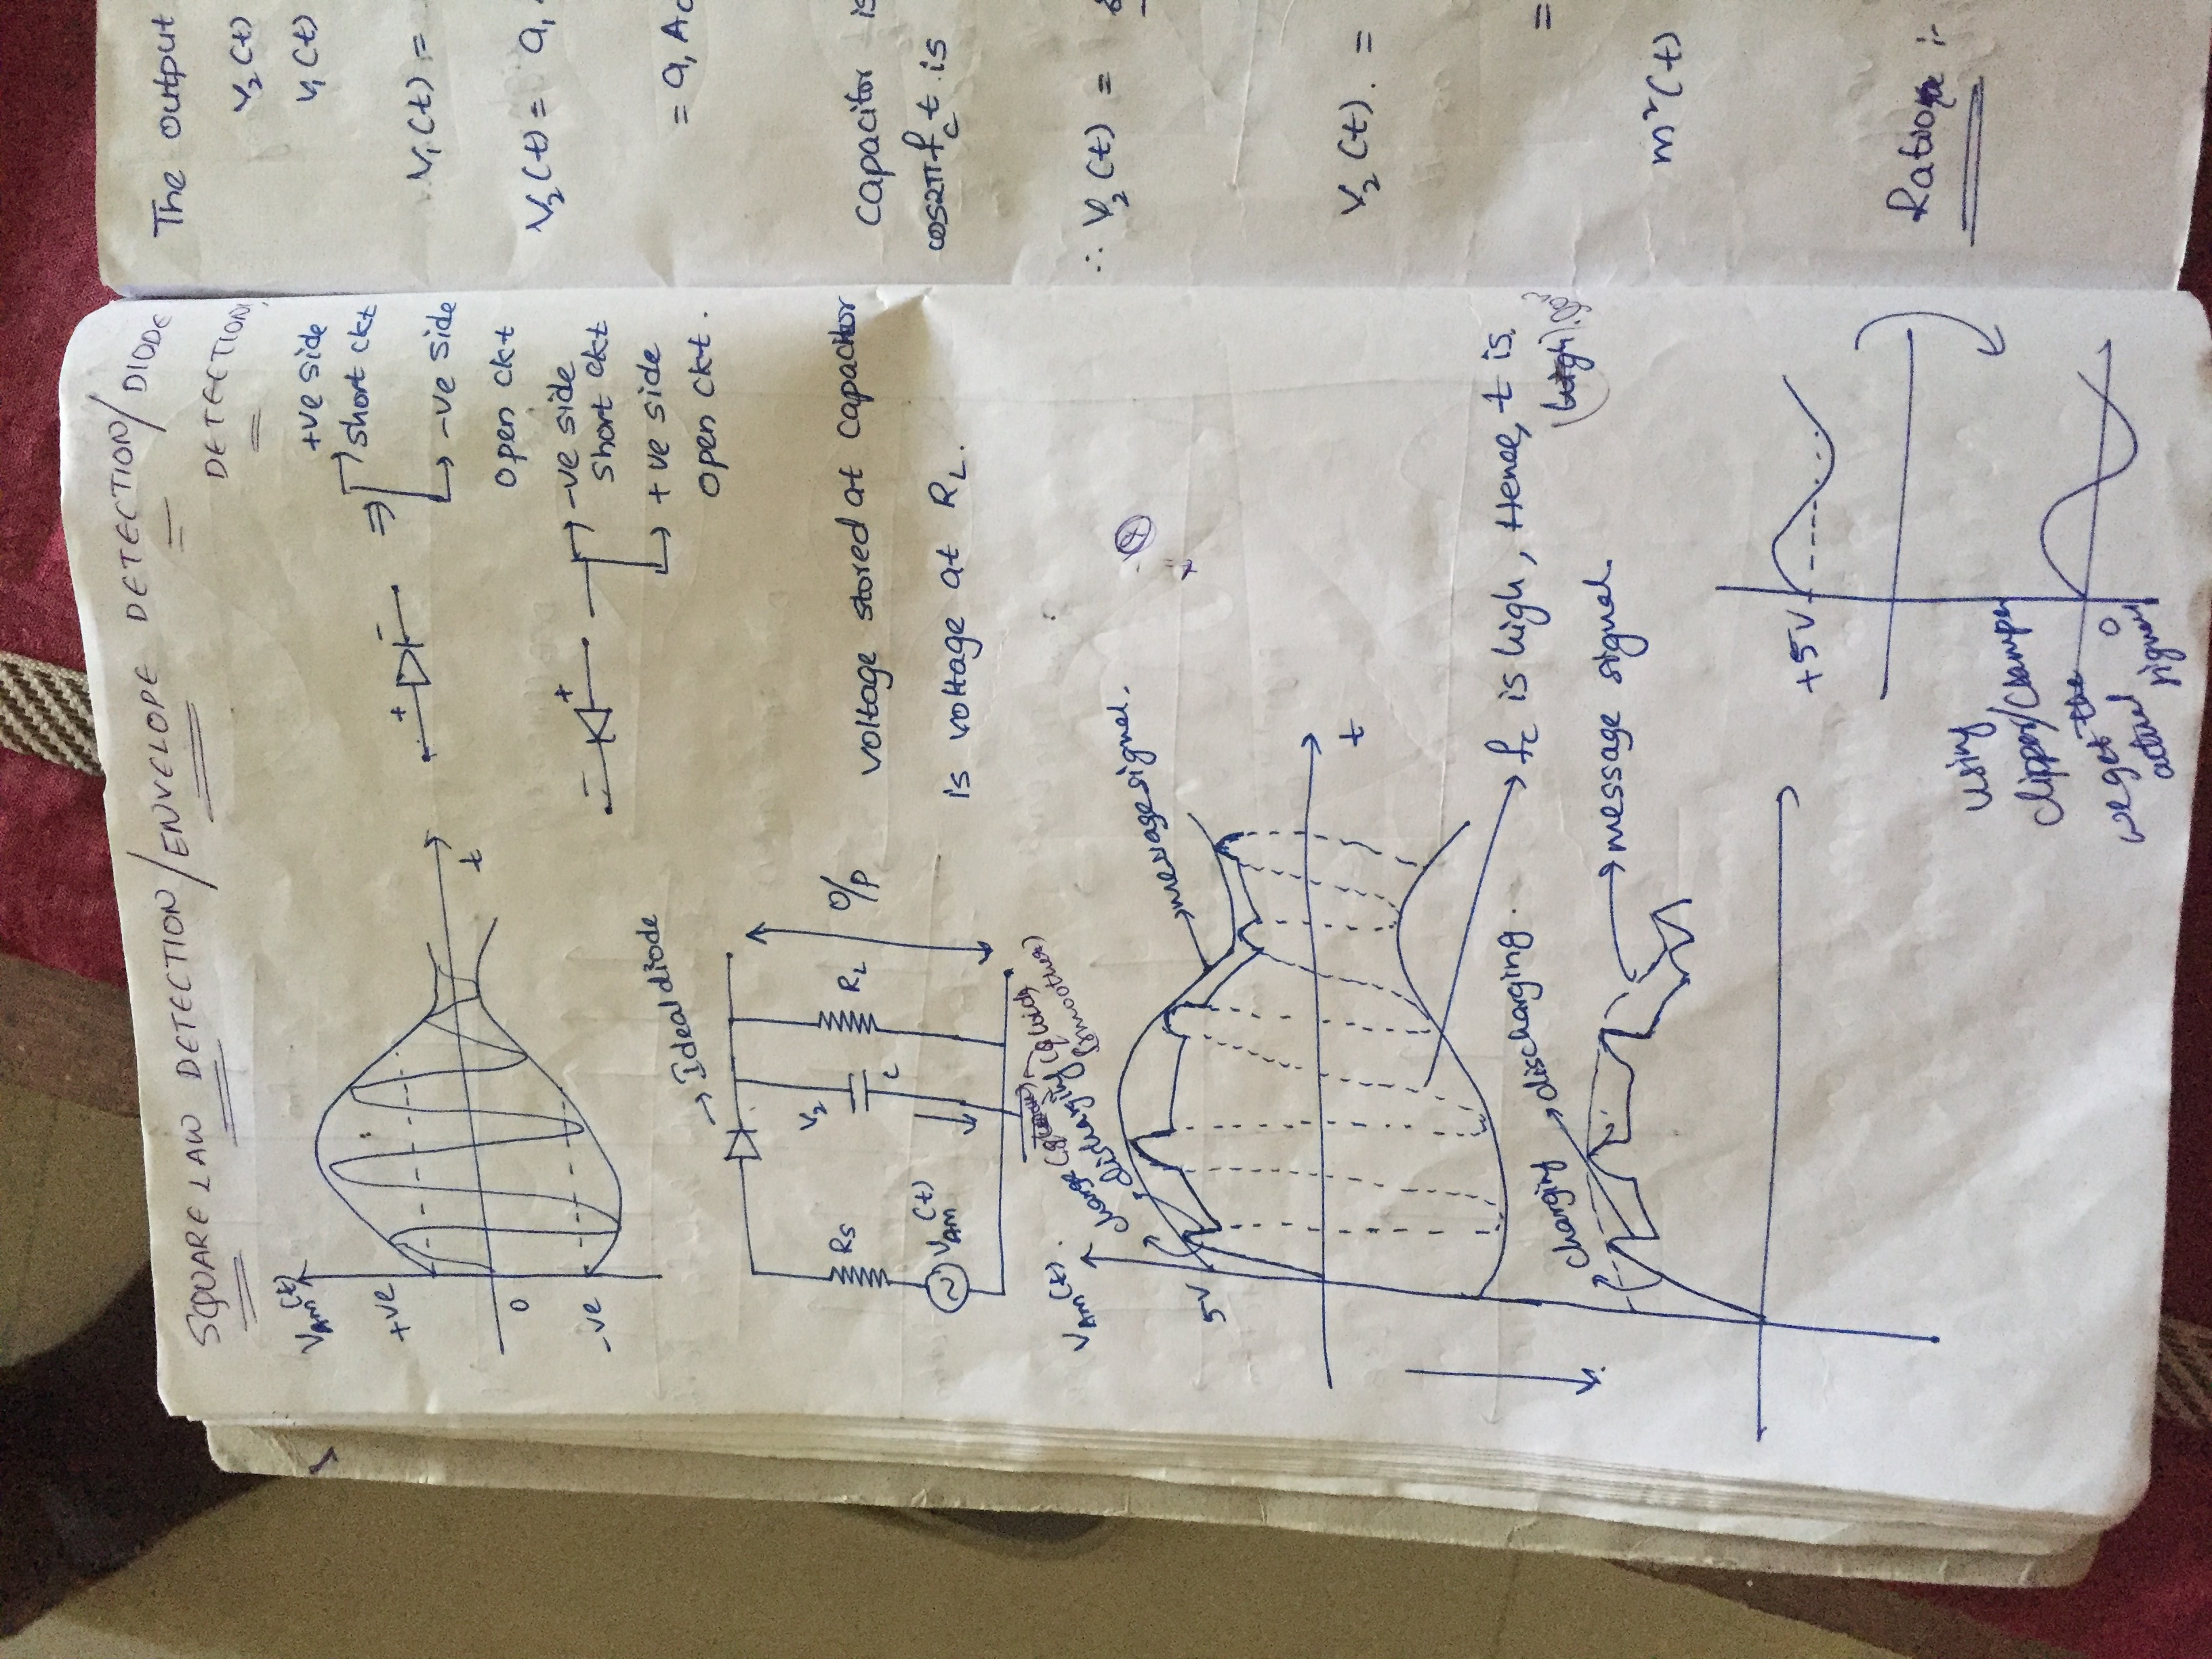 SQUARE LAW DETECTION/ENVELOPE DETECTION/DIODE
DETECTION
V_AM(t)
+ve
0
-ve
t
+ -
⇒
+ve side
short ckt
-ve side
open ckt
- +
-ve side
short ckt
+ve side
open ckt.
→ Ideal diode
Rs
V_AM(t)
V2
C
RL
O/p
voltage stored at capacitor
is voltage at RL.
V_AM(t).
charge
discharging
(smoother)
5V
message signal.
t
fc is high, Hence, t is
(high) low
charging
discharging.
message signal
+5V
using
clipper/clamper
we get the
actual
signal
0
The output
V2(t)
V1(t)
V1(t) =
V2(t) = a1
= a1 Ac
capacitor is
cos2πfct is
∴ V2(t) =
V2(t). =
=
m²(t)